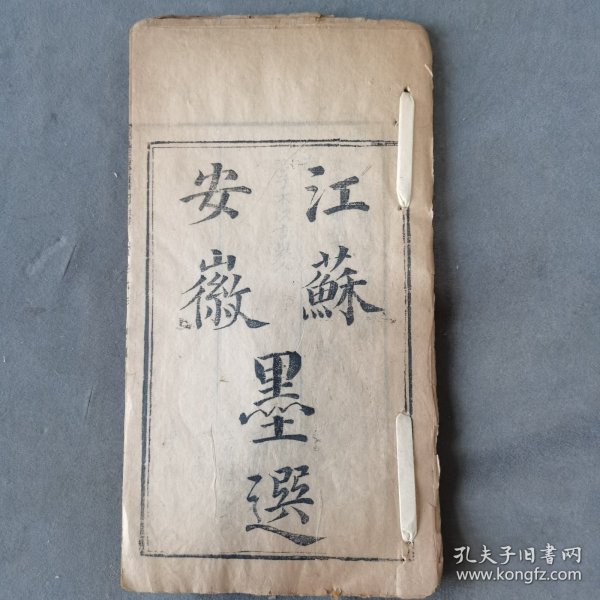 江蘇
安徽
墨選
孔夫子旧书网
www.kongfz.com